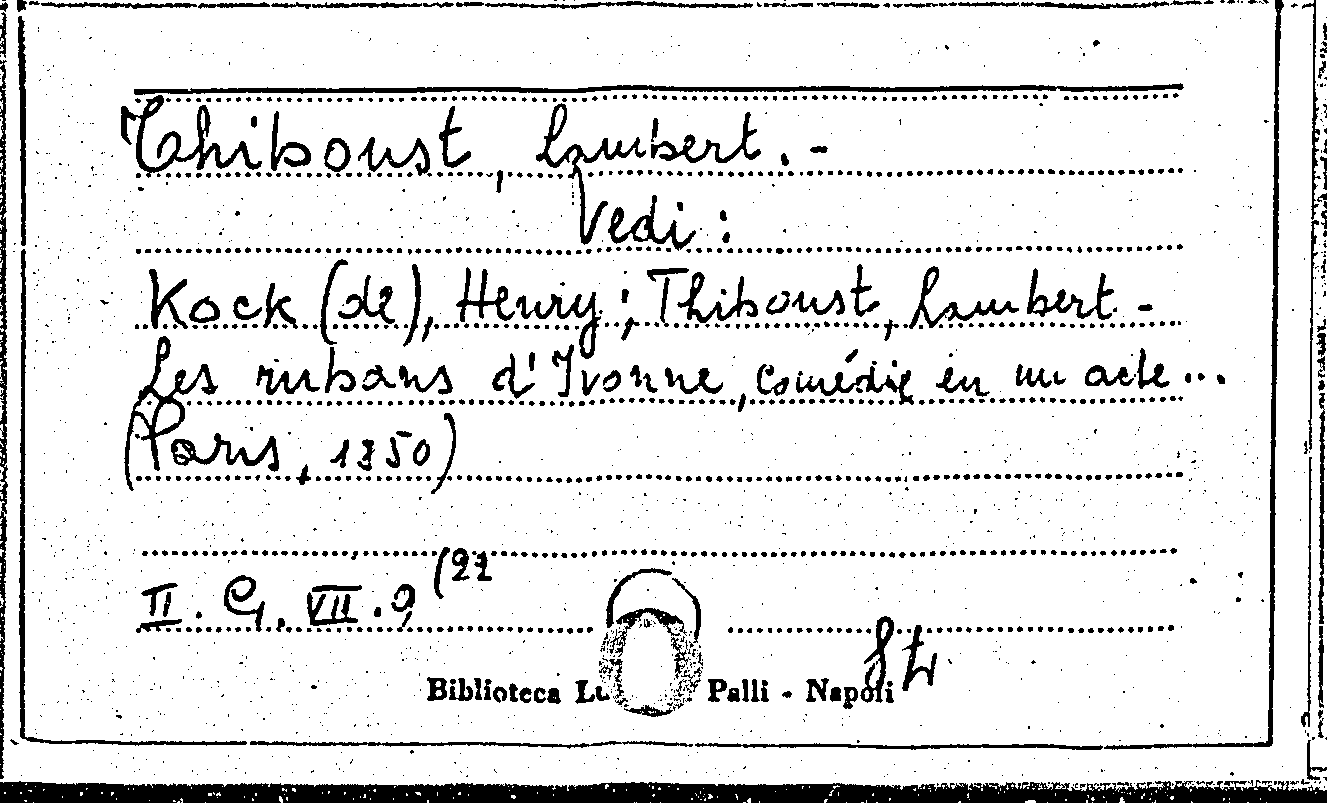 Thiboust, Lambert. -
Vedi :
Kock (de), Henry; Thiboust, Lambert -
Les rubans d'Ivonne, comédie en un acte...
(Paris, 1850)
II. G. VII. 9 (22
Biblioteca Lu Palli - Napoli